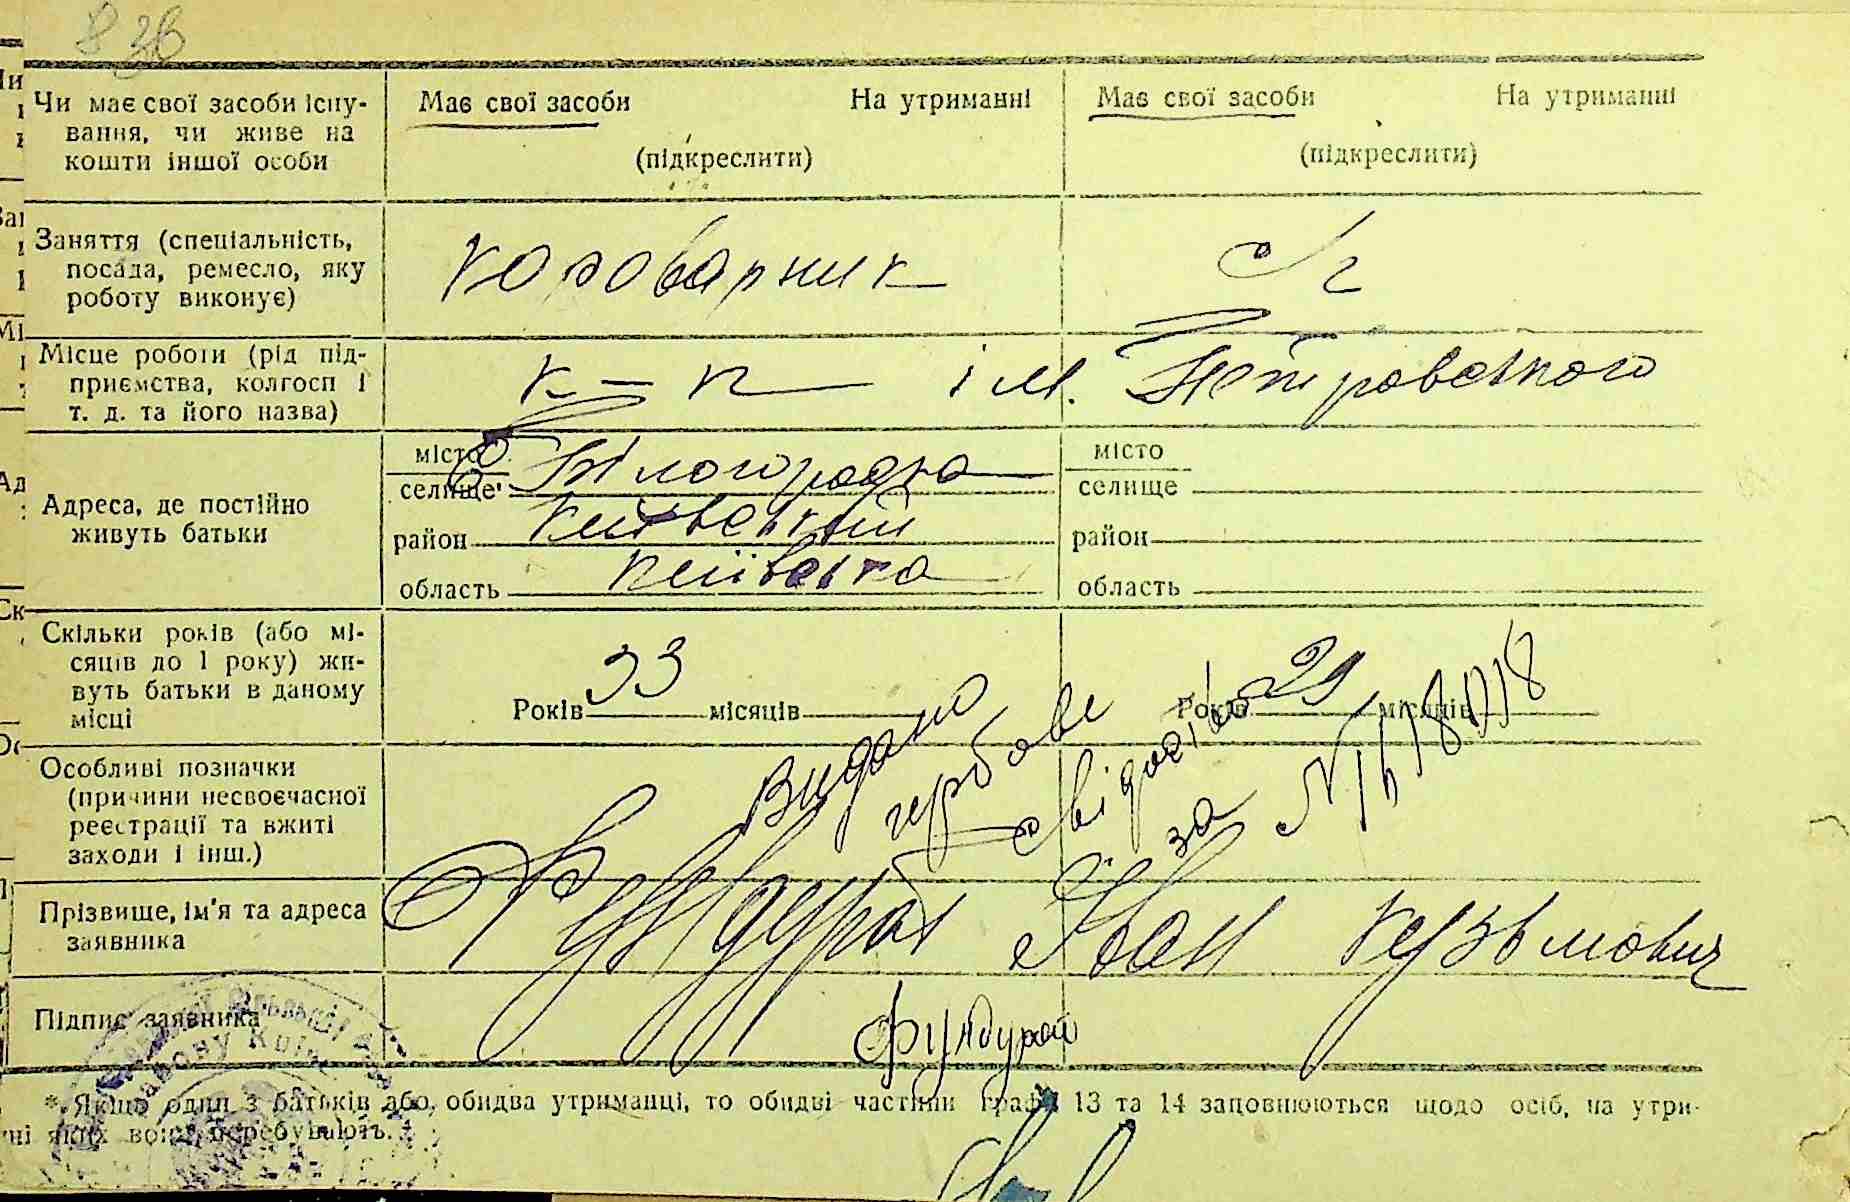 836
Чи має свої засоби існу-
вання, чи живе на
кошти іншої особи
Має свої засоби На утриманні
(підкреслити)
Має свої засоби На утриманні
(підкреслити)
Заняття (спеціальність,
посада, ремесло, яку
роботу виконує)
Місце роботи (рід під-
приємства, колгосп і
т. д. та його назва)
к-п ім. Петровського
Адреса, де постійно
живуть батьки
місто
селище Білогородка
район Київський
область Київська
місто
селище
район
область
Скільки років (або мі-
сяців до 1 року) жи-
вуть батьки в даному
місці
Років 33 місяців
Років 29 місяців
Особливі позначки
(причини несвоєчасної
реєстрації та вжиті
заходи і інш.)
Видано
гербове
свідоцтво
за №
Прізвище, ім'я та адреса
заявника
Фундурат Іван Кузьмович
Підпис заявника
* Якщо один з батьків або обидва утриманці, то обидві частини граф 13 та 14 заповнюються щодо осіб, на утри-
ні яких вони перебувають.